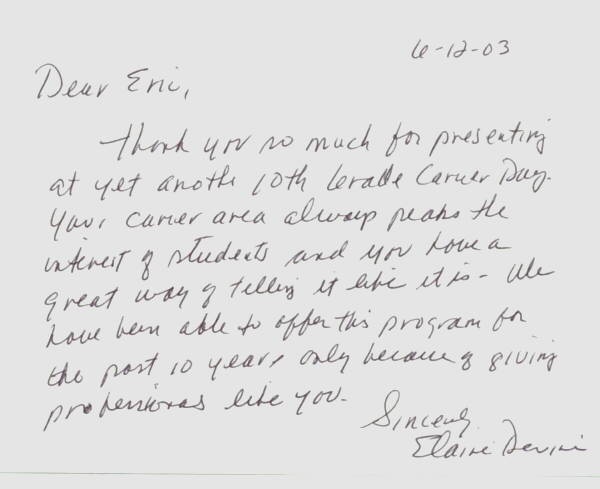 6-12-03
Dear Eric,
Thank you so much for presenting
at yet another 10th Grade Career Day.
Your career area always peaks the
interest of students and you have a
great way of telling it like it is - We
have been able to offer this program for
the past 10 years only because of giving
professionals like you.
Sincerely,
Elaine Devine